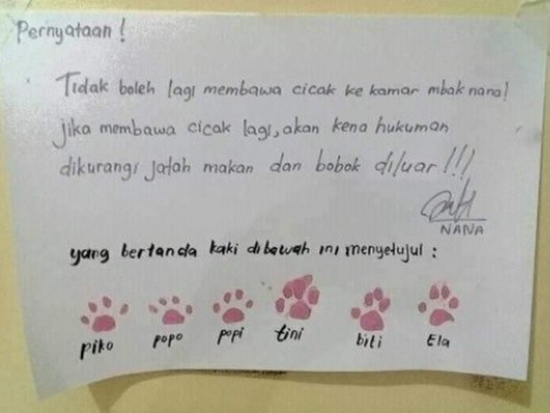 Pernyataan !
Tidak boleh lagi membawa cicak ke kamar mbak nana!
jika membawa cicak lagi, akan kena hukuman
dikurangi jatah makan dan bobok diluar!!!
NANA
yang bertanda kaki dibawah ini menyetujui :
piko popo popi tini biti Ela